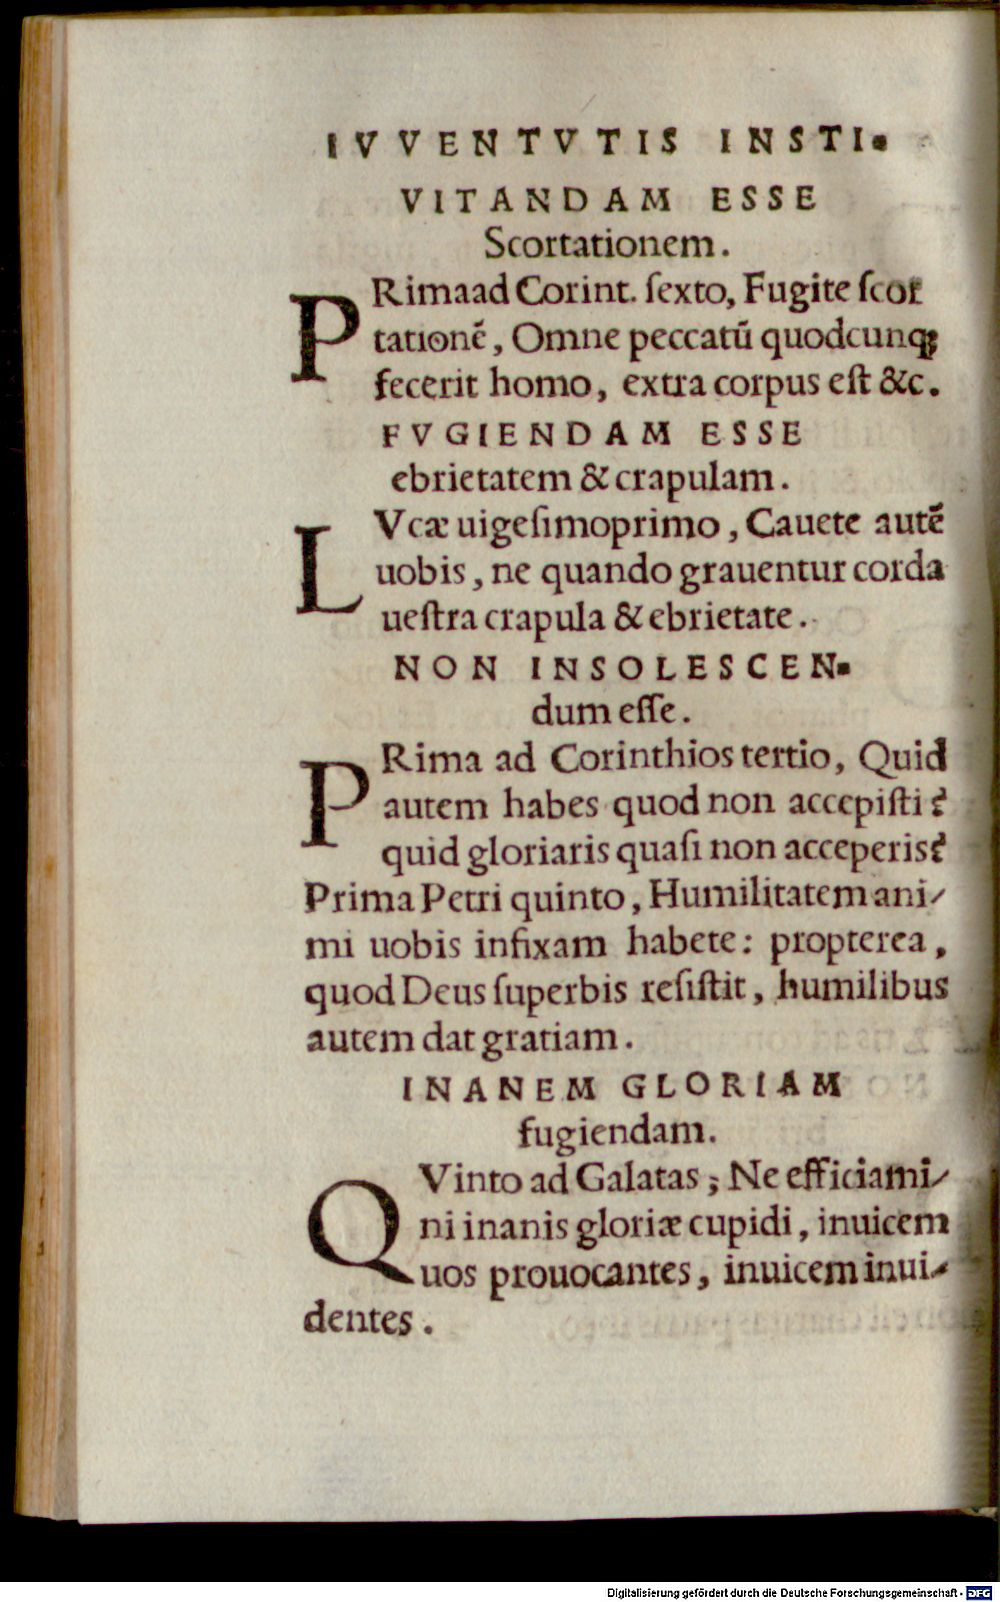 IVVENTVTIS INSTI-
VITANDAM ESSE
Scortationem.
PRimaad Corint. ſexto, Fugite ſcor
tationẽ, Omne peccatũ quodcunqꝫ
fecerit homo, extra corpus eſt &c.
FVGIENDAM ESSE
ebrietatem & crapulam.
LVcæ uigeſimoprimo, Cauete autẽ
uobis, ne quando grauentur corda
ueſtra crapula & ebrietate.
NON INSOLESCEN-
dum eſſe.
PRima ad Corinthios tertio, Quid
autem habes quod non accepiſti?
quid gloriaris quaſi non acceperis?
Prima Petri quinto, Humilitatem ani-
mi uobis infixam habete: propterea,
quod Deus ſuperbis reſiſtit, humilibus
autem dat gratiam.
INANEM GLORIAM
fugiendam.
QVinto ad Galatas; Ne efficiami-
ni inanis gloriæ cupidi, inuicem
uos prouocantes, inuicem inui-
dentes.
Digitalisierung gefördert durch die Deutsche Forschungsgemeinschaft - DFG